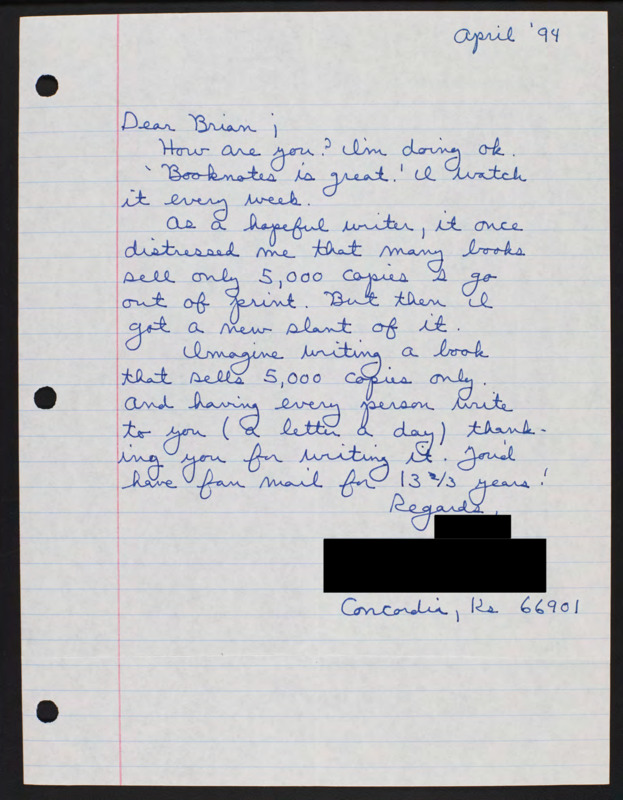 April '94
Dear Brian ;
How are you? I'm doing ok.
'Booknotes is great.' I watch
it every week.
As a hopeful writer, it once
distressed me that many books
sell only 5,000 copies & go
out of print. But then I
got a new slant of it.
Imagine writing a book
that sells 5,000 copies only.
And having every person write
to you (a letter a day) thank-
ing you for writing it. You'd
have fan mail for 13 2/3 years!
Regards,
Concordia, Ks 66901